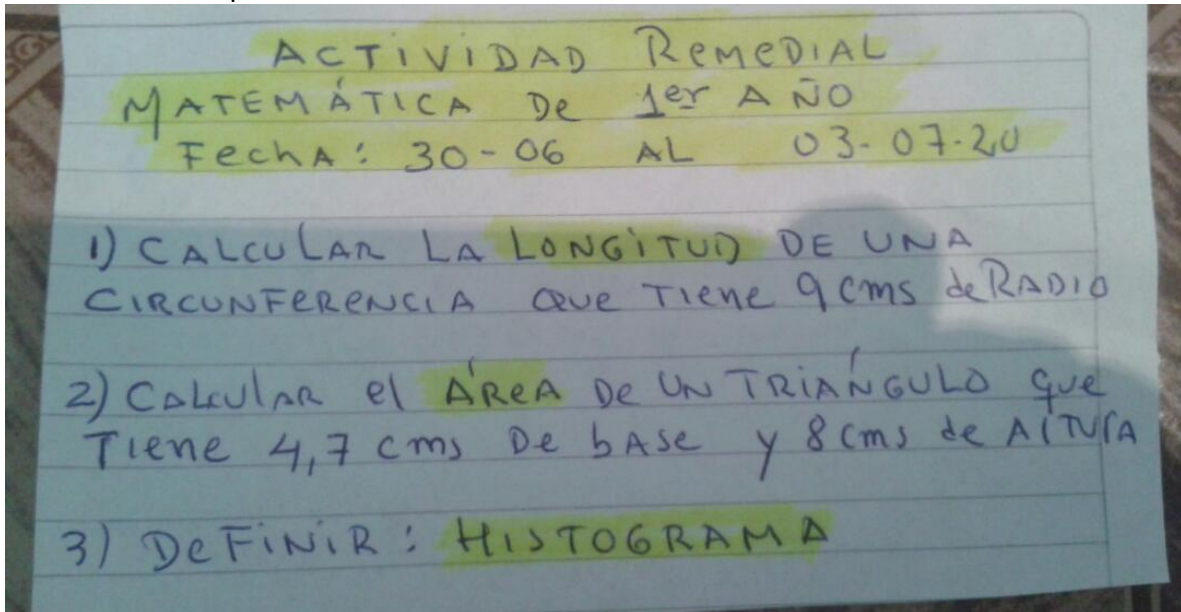 ACTIVIDAD REMEDIAL
MATEMÁTICA De 1er AÑO
FechA: 30-06 AL 03-07-20
1) CALCULAR LA LONGITUD DE UNA
CIRCUNFERENCIA QUE TIENE 9 cms de RADIO
2) CALCULAR el ÁREA DE UN TRIÁNGULO QUE
TIENE 4,7 cms De bASE y 8 cms de AlTURA
3) DEFINIR: HISTOGRAMA